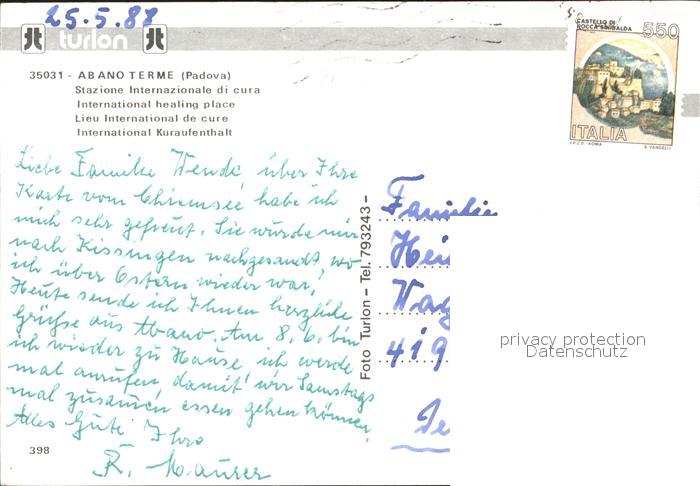 25.5.88
turlon
35031 - ABANO TERME (Padova)
Stazione Internazionale di cura
International healing place
Lieu International de cure
International Kuraufenthalt
Liebe Familie Wende über Ihre
Karte vom Chiemsee habe ich
mich sehr gefreut. Sie wurde mir
nach Kissingen nachgesandt, wo
ich über Ostern wieder war,
Heute sende ich Ihnen herzliche
Grüße aus Abano. Am 8. 6. bin
ich wieder zu Hause ich werde
mal anrufen damit wir Samstags
mal zusammen essen gehen können,
Alles Gute Ihre
R. Maurer
398
Foto Turlon - Tel. 793243 -
CASTELLO DI
ROCCA SINIBALDA
550
ITALIA
I.P.Z.S. - ROMA
E. VANGELLI
Familie
Hei
Wag
419
privacy protection
Datenschutz